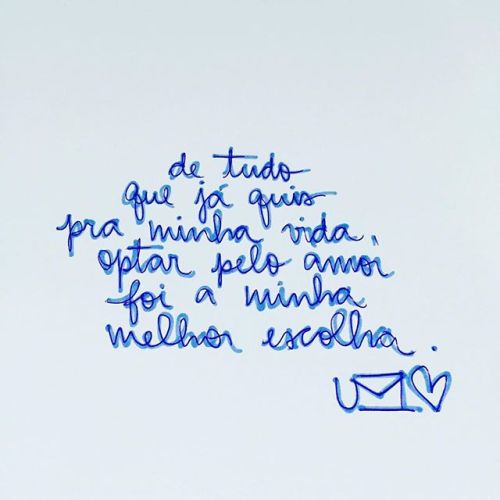 de tudo
que já quis
pra minha vida,
optar pelo amor
foi a minha
melhor escolha.